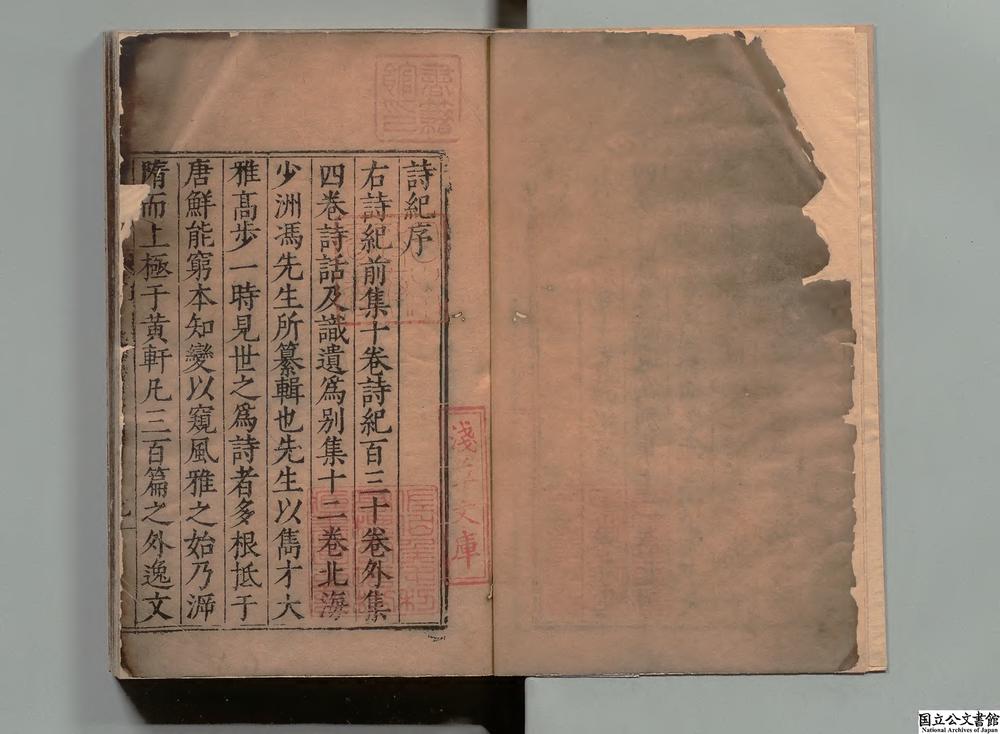 詩紀序
右詩紀前集十卷詩紀百三十卷外集
四卷詩話及識遺爲别集十二卷北海
少洲馮先生所纂輯也先生以雋才大
雅髙歩一時見世之爲詩者多根柢于
唐鮮能窮本知變以窺風雅之始乃溯
隋而上極于黃軒凡三百篇之外逸文
書籍
館印
淺草文庫
国立公文書館
National Archives of Japan